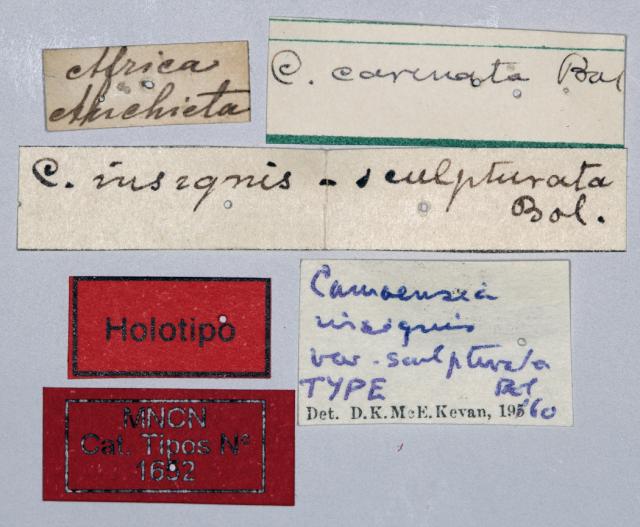 Africa
Anchieta
C. carinata Bol
C. insignis - sculpturata
Bol.
Holotipo
MNCN
Cat. Tipos Nº
1652
Camoensia
insignis
var. sculpturata
TYPE Bol
Det. D.K.McE.Kevan, 1960